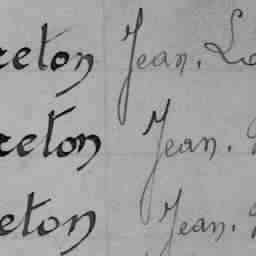 reton Jean. Lo
reton Jean.
eton Jean.